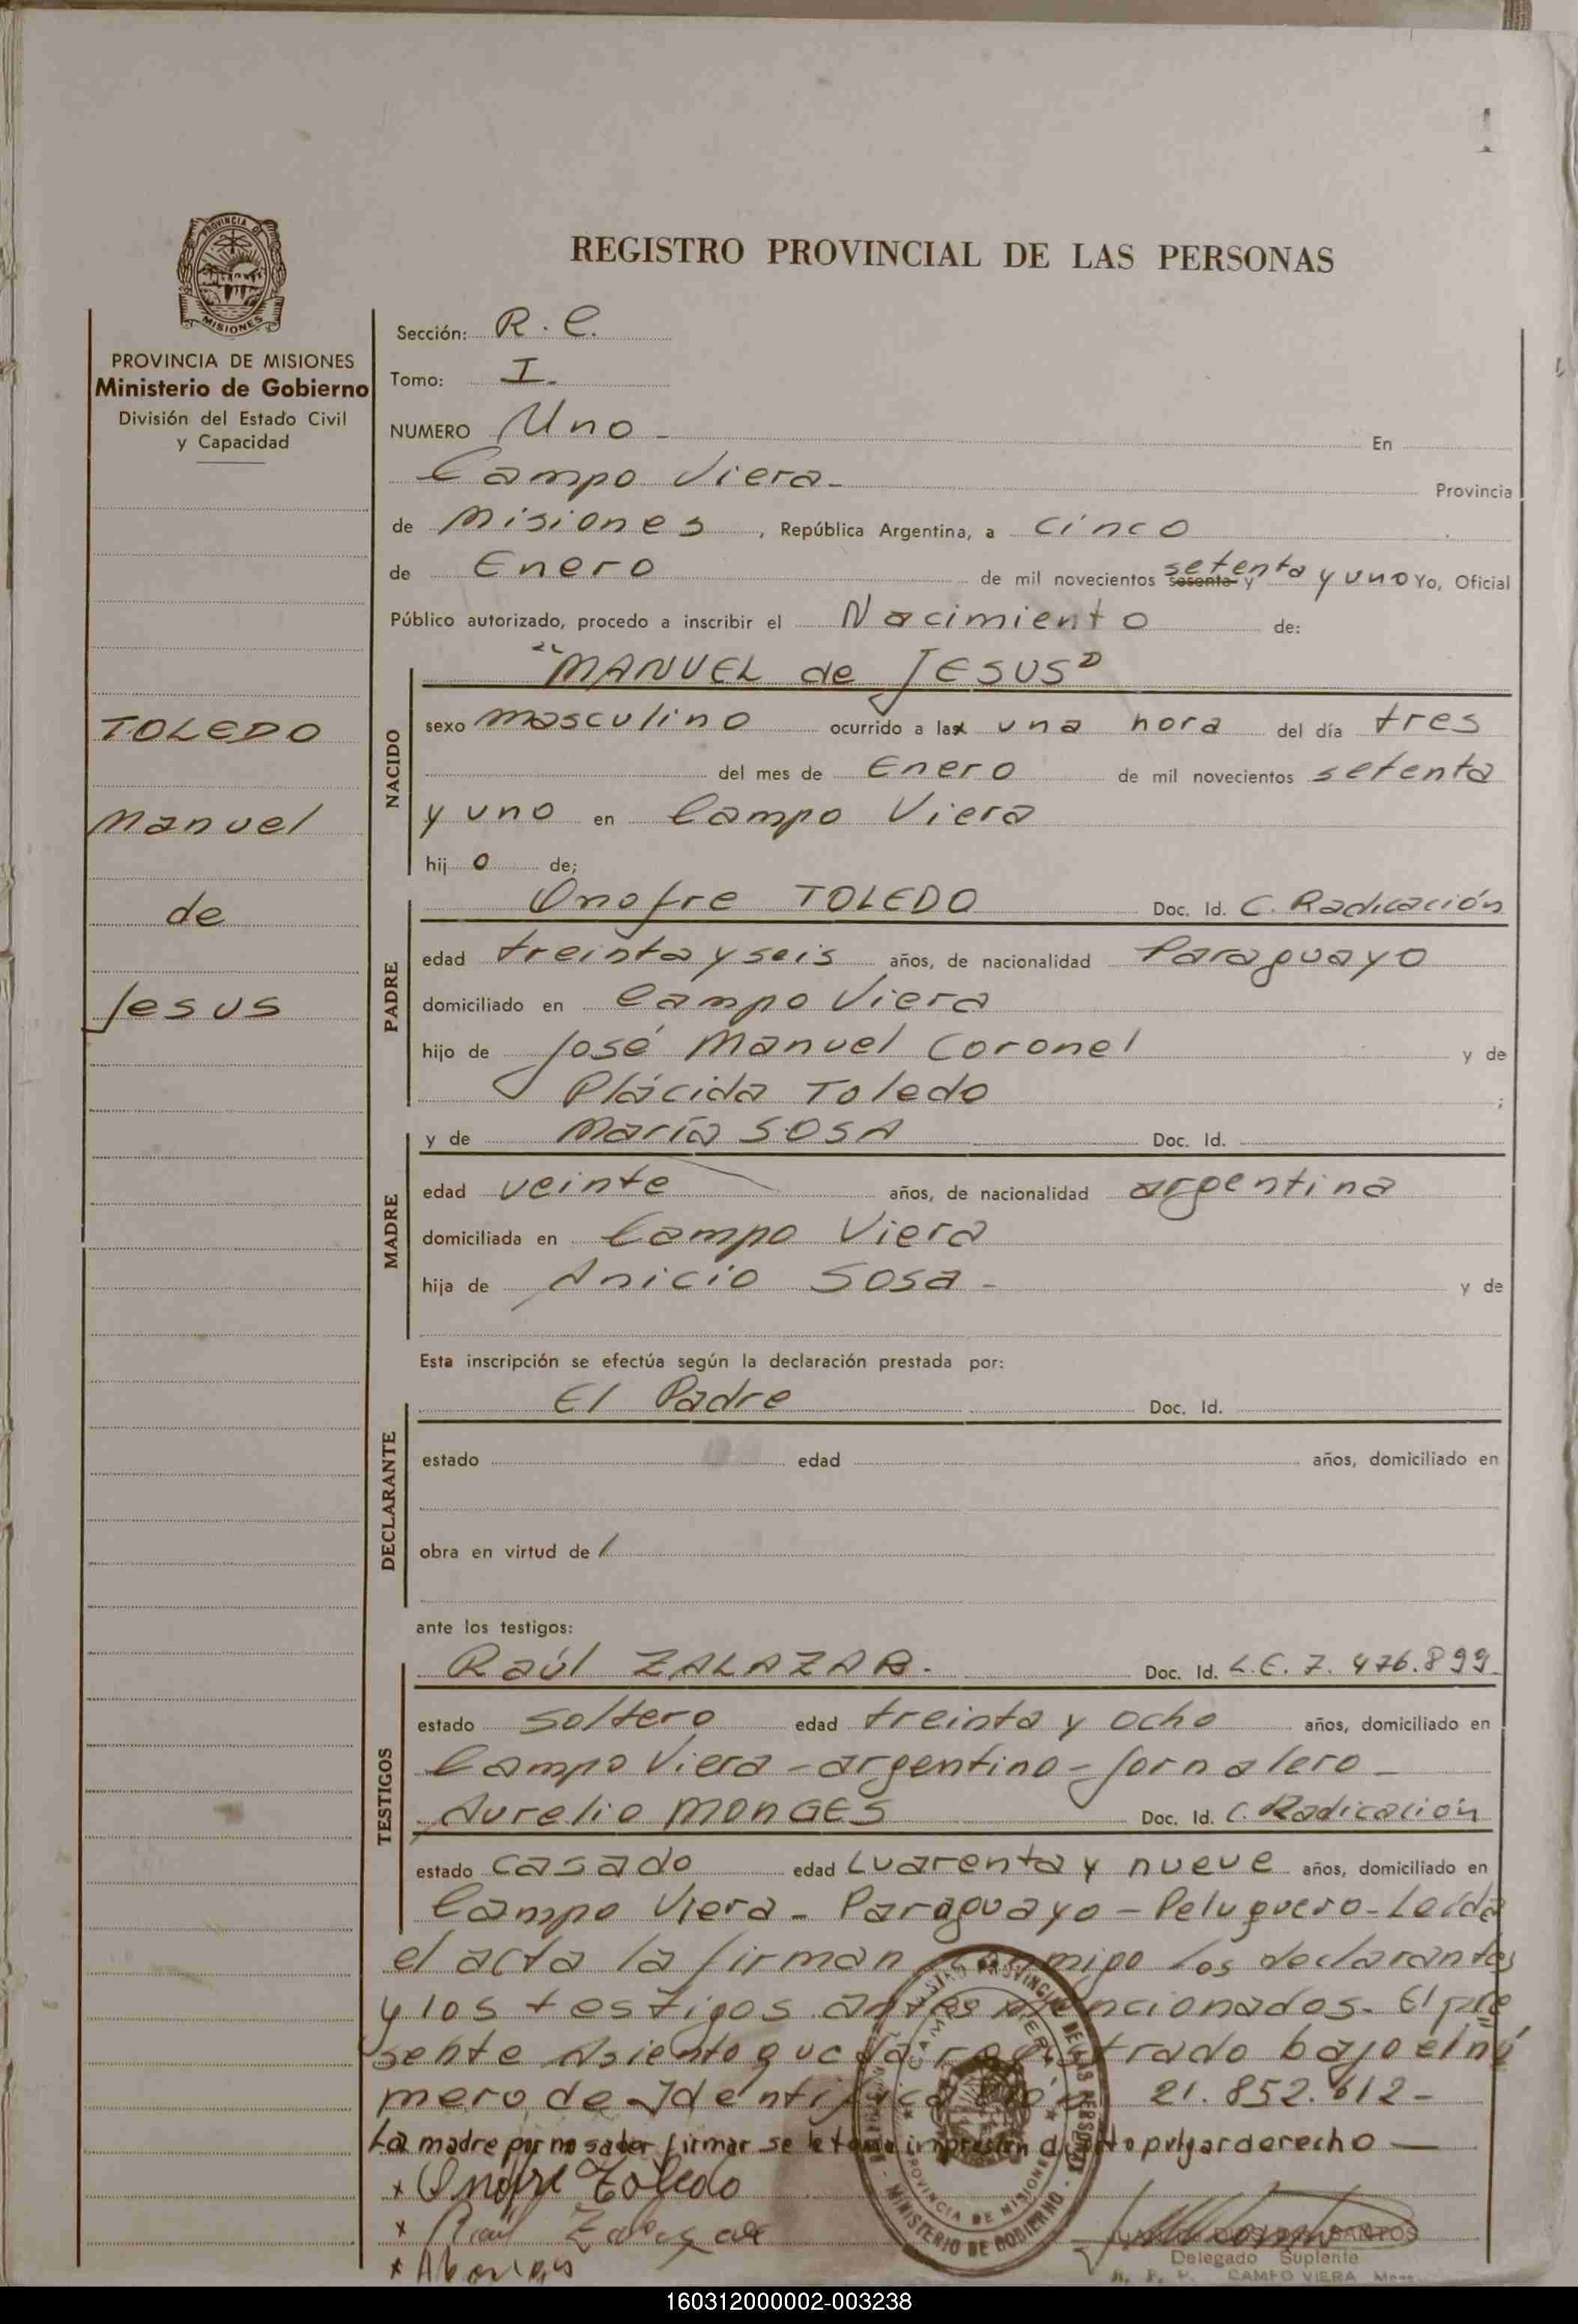 1
PROVINCIA DE
MISIONES
REGISTRO PROVINCIAL DE LAS PERSONAS
PROVINCIA DE MISIONES
Ministerio de Gobierno
División del Estado Civil
y Capacidad
TOLEDO
Manuel
de
Jesus
Sección: R. C.
Tomo: I-
NUMERO Uno - En
Campo Viera - Provincia
de Misiones, República Argentina, a cinco
de Enero de mil novecientos sesenta y setenta y uno Yo, Oficial
Público autorizado, procedo a inscribir el Nacimiento de:
"MANUEL de JESUS"
NACIDO
sexo masculino ocurrido a las una hora del día tres
del mes de Enero de mil novecientos setenta
y uno en Campo Viera
hij o de;
PADRE
Onofre TOLEDO Doc. Id. C. Radicación
edad treinta y seis años, de nacionalidad Paraguayo
domiciliado en Campo Viera
hijo de José Manuel Coronel y de
Plácida Toledo ;
MADRE
y de María SOSA Doc. Id.
edad veinte años, de nacionalidad argentina
domiciliada en Campo Viera
hija de Anicio Sosa - y de
Esta inscripción se efectúa según la declaración prestada por:
DECLARANTE
El Padre Doc. Id.
estado edad años, domiciliado en
obra en virtud de /
ante los testigos:
TESTIGOS
Raúl ZALAZAR. Doc. Id. L.E. 7.476.899
estado soltero edad treinta y ocho años, domiciliado en
Campo Viera - argentino - jornalero -
Aurelio MONGES Doc. Id. C. Radicación
estado casado edad cuarenta y nueve años, domiciliado en
Campo Viera - Paraguayo - Peluquero - Leída
el acta la firman conmigo los declarantes
y los testigos antes mencionados. El pre
sente Asiento queda registrado bajo el nú
mero de Identificación 21.852.612-
La madre por no saber firmar se le toma impresión dígito pulgar derecho —
x Onofre Toledo
x Raúl Zalazar
x A Monges
REGISTRO PROVINCIAL DE LAS PERSONAS
CAMPO VIERA
PROVINCIA DE MISIONES
MINISTERIO DE GOBIERNO
SANTOS
Delegado Suplente
CAMPO VIERA
160312000002-003238